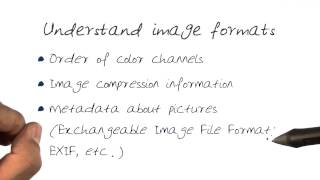 Understand image formats
Order of color channels
Image compression information
Metadata about pictures
(Exchangeable Image File Format:
EXIF, etc.)